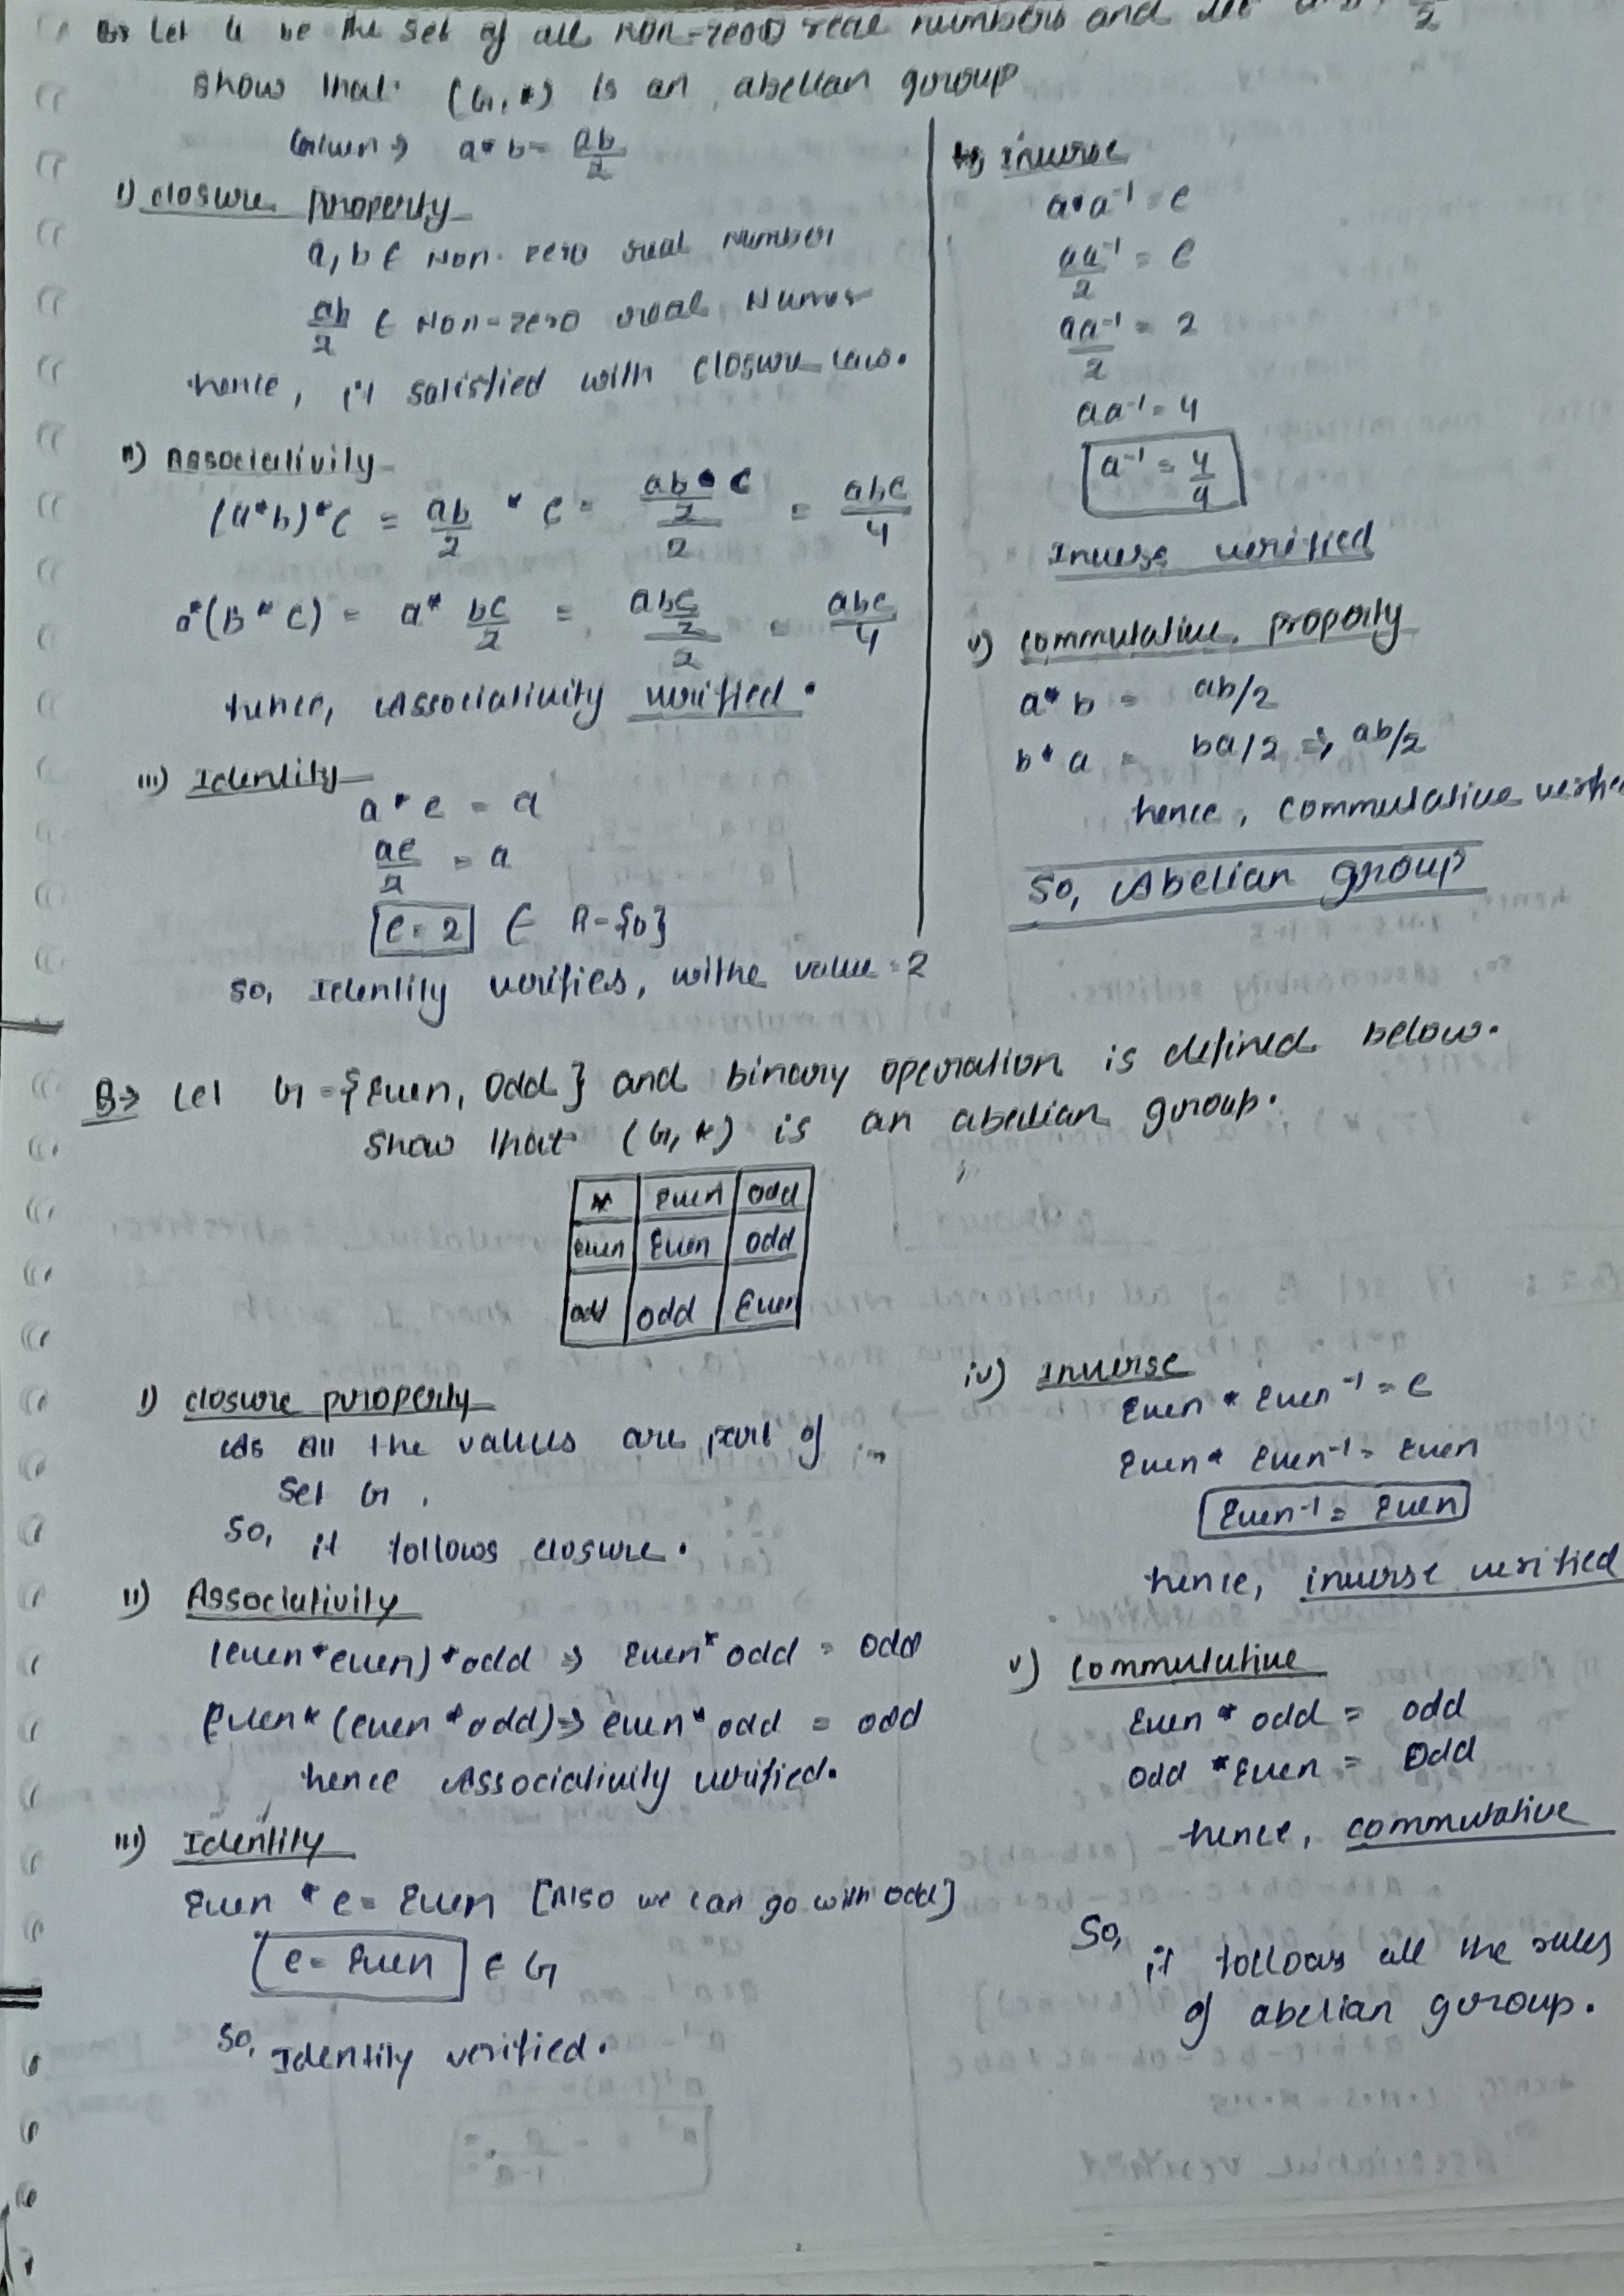 Q> Let G be the set of all non-zero real numbers and let a*b = ab/2
Show that (G, *) is an abelian group
Given → a*b = ab/2
i) closure property
a, b ∈ Non-zero real Number
ab/2 ∈ Non-zero real Numer
hence, it satisfied with closure law.
ii) Associativity
(a*b)*c = ab/2 * c = (ab/2 • c)/2 = abc/4
a*(B*C) = a* bc/2 = (abc/2)/2 = abc/4
hence, Associativity verified.
iii) Identity
a * e = a
ae/2 = a
e = 2 ∈ R-{0}
So, Identity verifies, withe value = 2
iv) Inverse
a*a⁻¹ = e
aa⁻¹/2 = e
aa⁻¹/2 = 2
aa⁻¹ = 4
a⁻¹ = 4/a
Inverse verified
v) commutative property
a* b = ab/2
b* a = ba/2 ⇒ ab/2
hence, commutative
So, Abelian group
Q→ Let G = {Even, Odd} and binary operation is defined below.
Show that (G, *) is an abelian group.
* Even odd
even Even odd
odd odd Even
i) closure property
As All the values are part of
Set G.
So, it follows closure.
ii) Associativity
(even*even)*odd ⇒ Even* odd = odd
Even* (even*odd) ⇒ even* odd = odd
hence Associativity verified.
iii) Identity
Even * e = Even [Also we can go with odd]
e = Even ∈ G
So, Identity verified.
iv) Inverse
Even * Even⁻¹ = e
Even * Even⁻¹ = Even
Even⁻¹ = Even
hence, inverse verified
v) commutative
Even * odd = odd
odd * Even = Odd
hence, commutative
So, it follows all the rules
of abelian group.